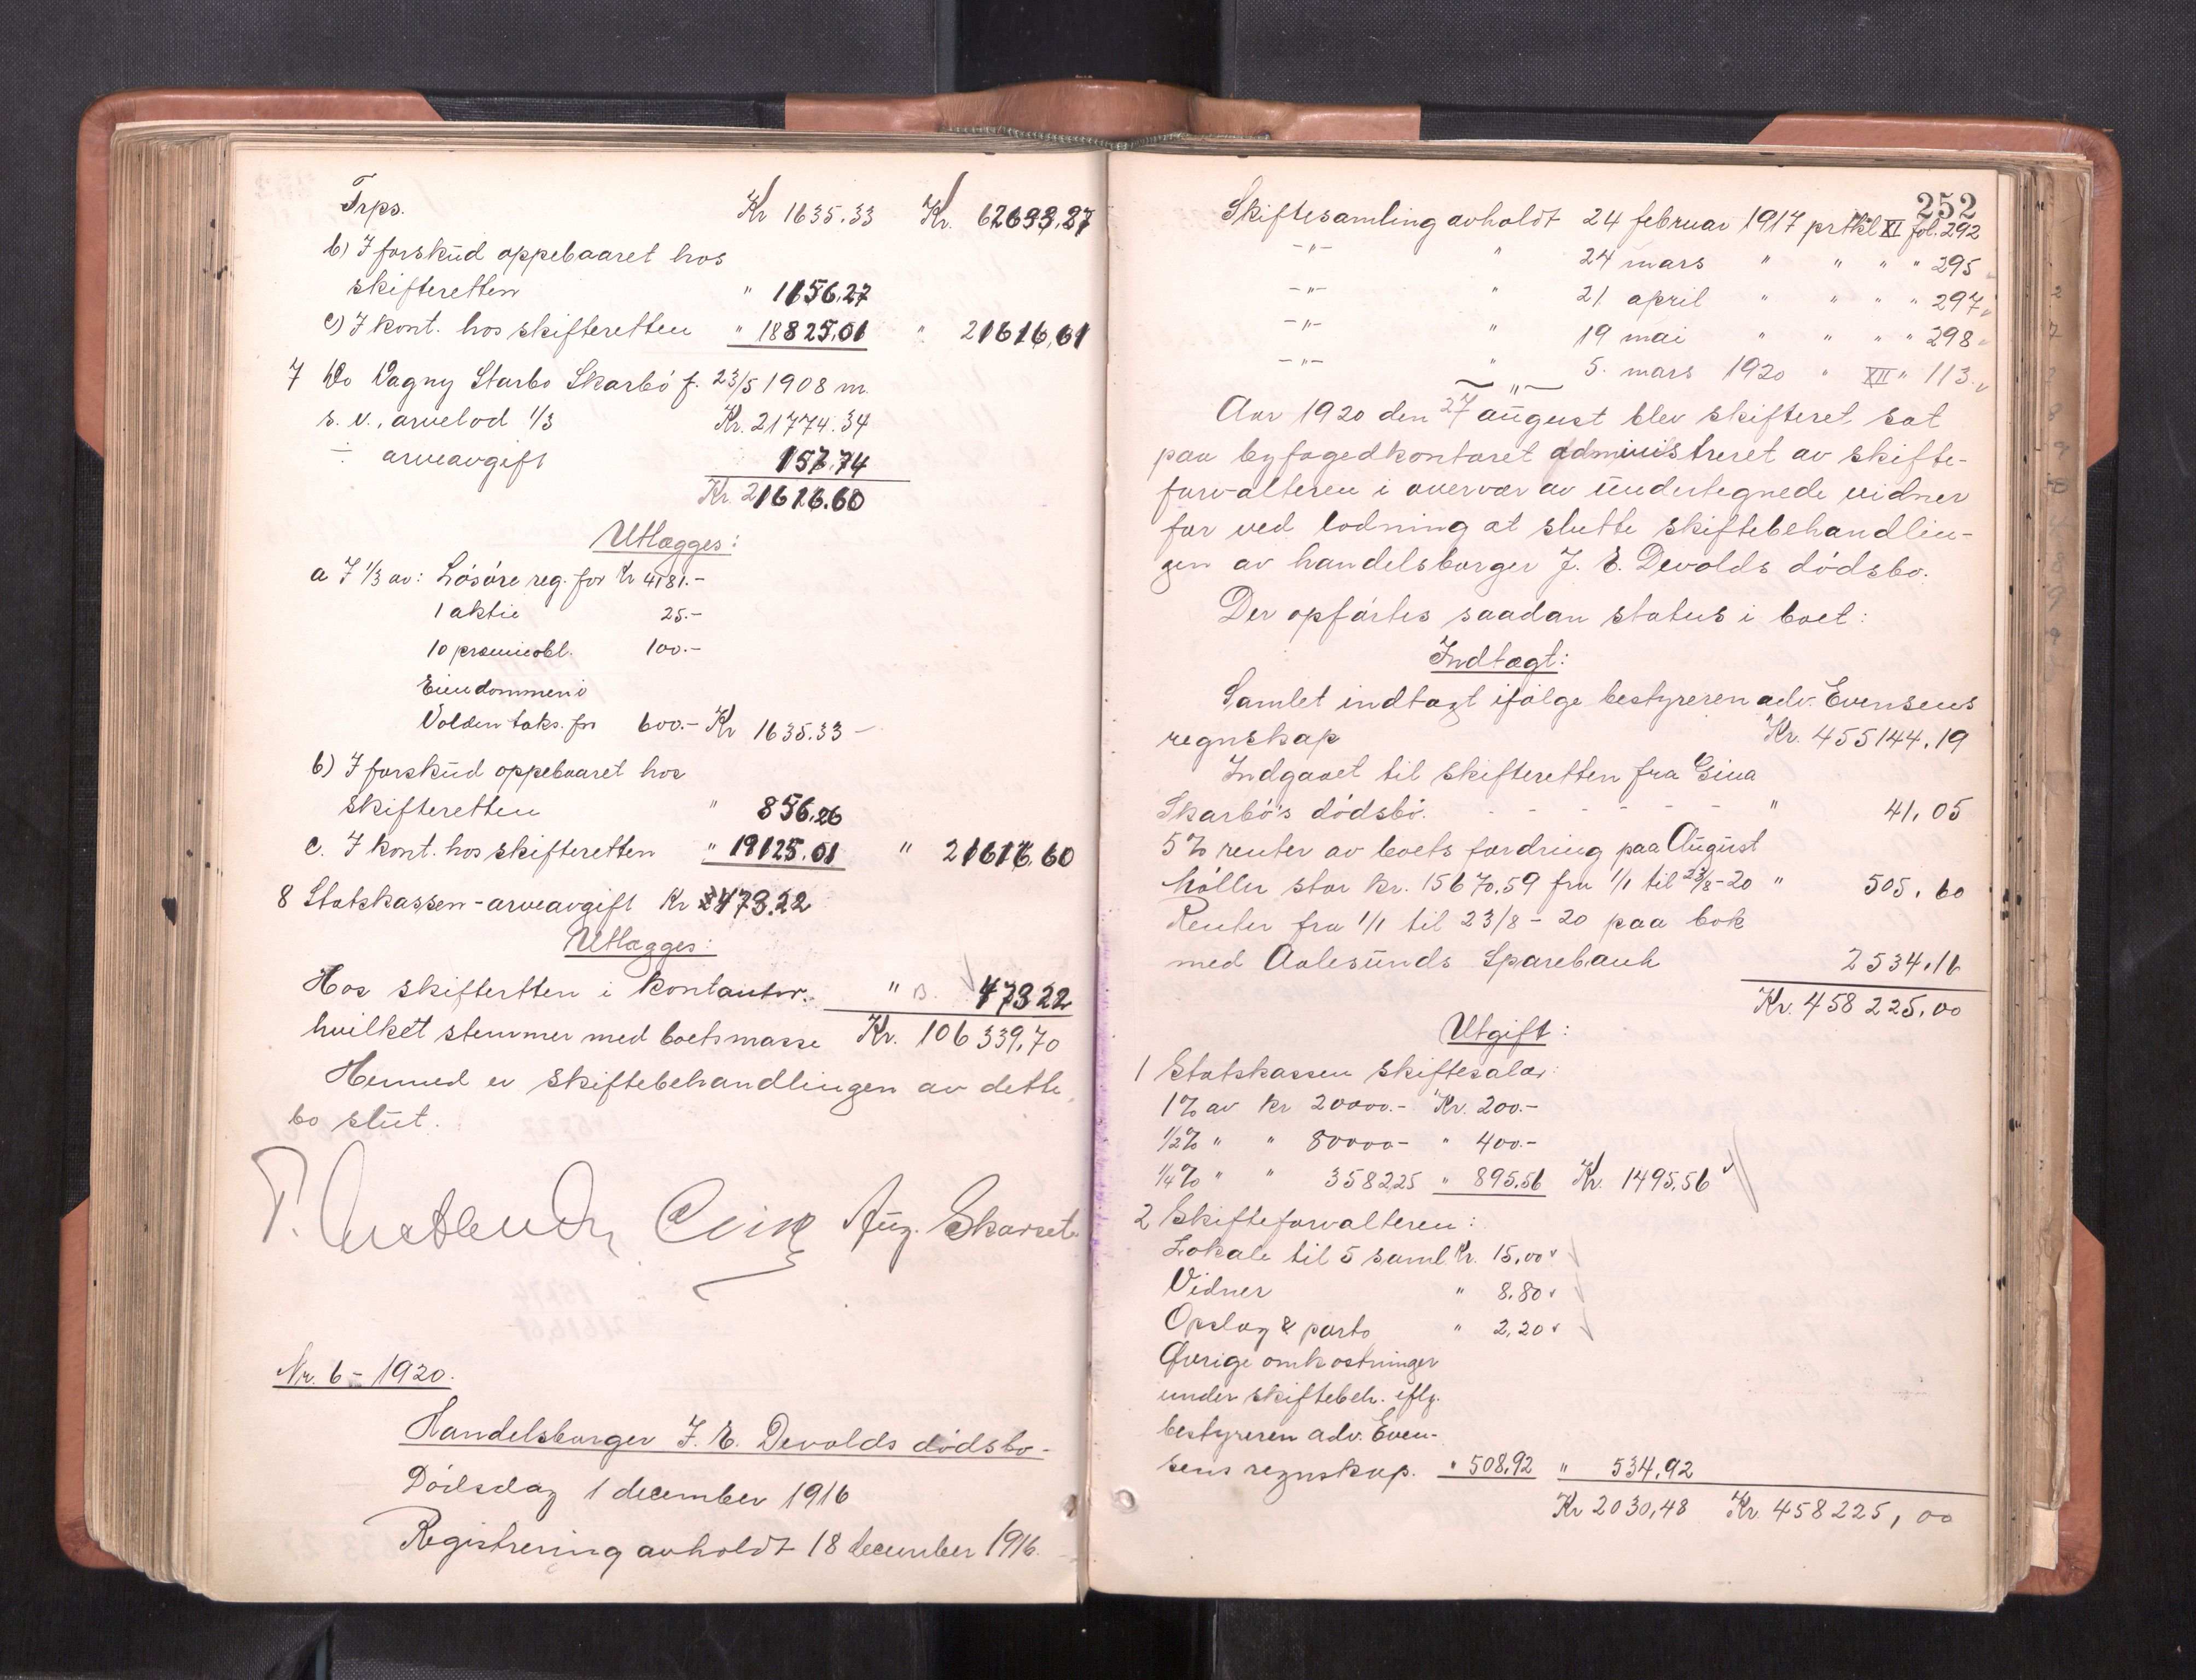 Trps. Kr 1635.33 Kr. 62693,27
b) I forskud oppebaaret hos
skifteretten " 1156,27
c) I kont. hos skifteretten " 18825,01 " 21616,61
7 Do Dagny Starbo Skarbö f. 23/5 1908 m.
s. v., arvelod 1/3 Kr. 21774.34
÷ arveavgift 157,74
Kr. 21616.60
Utlægges:
a I 1/3 av: Lösöre reg. for Kr 4181.-
1 aktie 25.-
10 præmieobl. 100.-
Eiendommen i
Volden taks. for 600.- Kr 1635.33 -
b) I forskud oppebaaret hos
skifteretten " 856,26
c. I kont. hos skifteretten " 19125.01 " 21616.60
8 Statskassen - arveavgift Kr 473.22
Utlægges:
Hos skifteretten i kontanter. " 473 22
hvilket stemmer med boets masse Kr. 106 339,70
Hermed er skiftebehandlingen av dette
bo slut.
Aug. Skarset
Nr. 6 - 1920.
Handelsborger J. E. Devolds dödsbo -
Dödsdag 1 december 1916
Registrering avholdt 18 december 1916.
252
Skiftesamling avholdt 24 februar 1917 prtkl XI fol. 292
-"- " 24 mars " " " " 295
-"- " 21 april " " " " 297
-"- " 19 mai " " " " 298
-"- " 5. mars 1920 " XII " 113.
-"-
Aar 1920 den 27 august blev skifteret sat
paa byfogedkontoret administreret av skifte-
forvalteren i overvær av undertegnede vidner
for ved lodning at slutte skiftebehandlin-
gen av handelsborger J. E. Devolds dödsbo.
Der opförtes saadan status i boet:
Indtægt:
Samlet indtægt ifölge bestyreren adv. Evensens
regnskap Kr. 455144.19
Indgaaet til skifteretten fra Gina
Skarbö's dödsbo. - - - - - " 41,05
5% renter av boets fordring paa August
Möller stor kr. 15670,59 fra 1/1 til 23/8-20 " 505,60
Renter fra 1/1 til 23/8 - 20 paa bok
med Aalesunds Sparebank 2534,16
Kr. 458 225,00
Utgift:
1 Statskassen skiftesalær:
1% av kr 20000.- Kr. 200.-
1/2% " " 80000- " 400.-
1/4% " " 358225 " 895,56 Kr. 1495,56
2 Skifteforvalteren:
Lokale til 5 saml Kr. 15,00
Vidner " 8.80
Opslag & porto " 2,20
Övrige omkostninger
under skiftebeh. iflg.
bestyreren adv. Even-
sens regnskap. " 508,92 " 534,92
Kr 2030,48 Kr. 458225,00